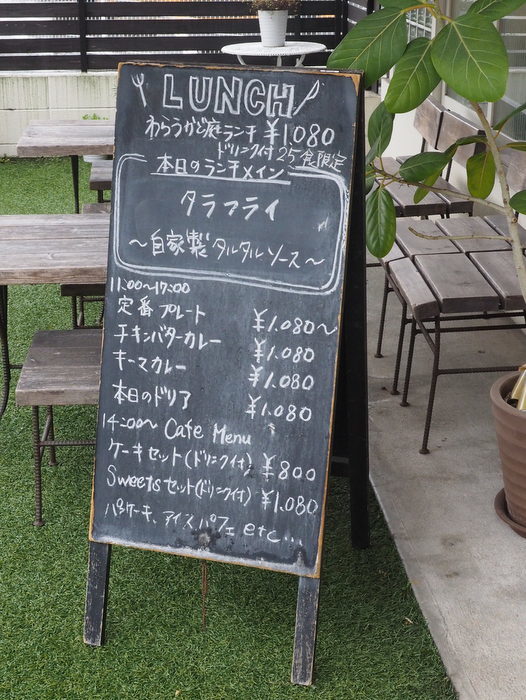 LUNCH
わらうかど庭ランチ ¥1,080
ドリンク付 25食限定
本日のランチメイン
タラフライ
～自家製タルタルソース～
11:00～17:00
定番プレート ¥1,080～
チキンバターカレー ¥1,080
キーマカレー ¥1,080
本日のドリア ¥1,080
14:00～ Cafe Menu
ケーキセット(ドリンク付) ¥800
Sweetsセット(ドリンク付) ¥1,080
パンケーキ、アイス、パフェ etc...